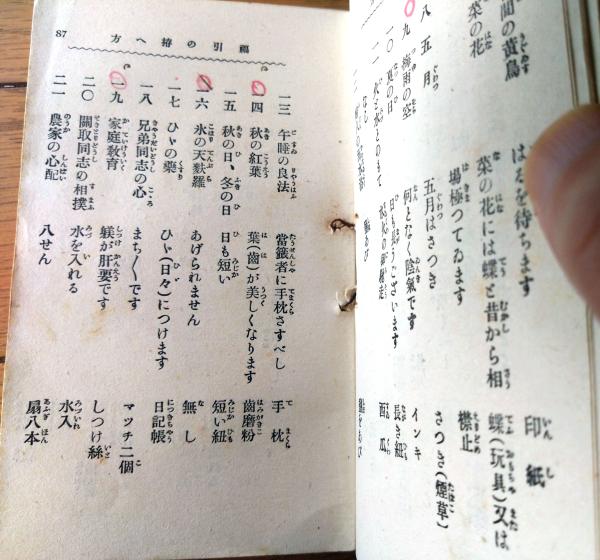 間の黄鳥
はるを待ちます
菜の花
菜の花には蝶と昔から相
場極つてゐます
印紙
蝶(玩具)又は
襟止
八 五月
五月はさつき
さつき(煙草)
九 梅雨の空
何となく陰氣です
インキ
一〇 夏の日
日も長うございます
長き紐
西瓜
87
福引の拵へ方
一三 午睡の良法
當籤者に手枕さすべし
手枕
一四 秋の紅葉
葉(齒)が美しくなります
齒磨粉
一五 秋の日、冬の日
日も短い
短い紐
一六 氷の天麩羅
あげられません
無し
一七 ひゞの藥
ひゞ(日々)につけます
日記帳
一八 兄弟同志の心
まち〳〵です
マツチ二個
一九 家庭敎育
躾が肝要です
しつけ絲
二〇 關取同志の相撲
水を入れる
水入
二一 農家の心配
八せん
扇八本